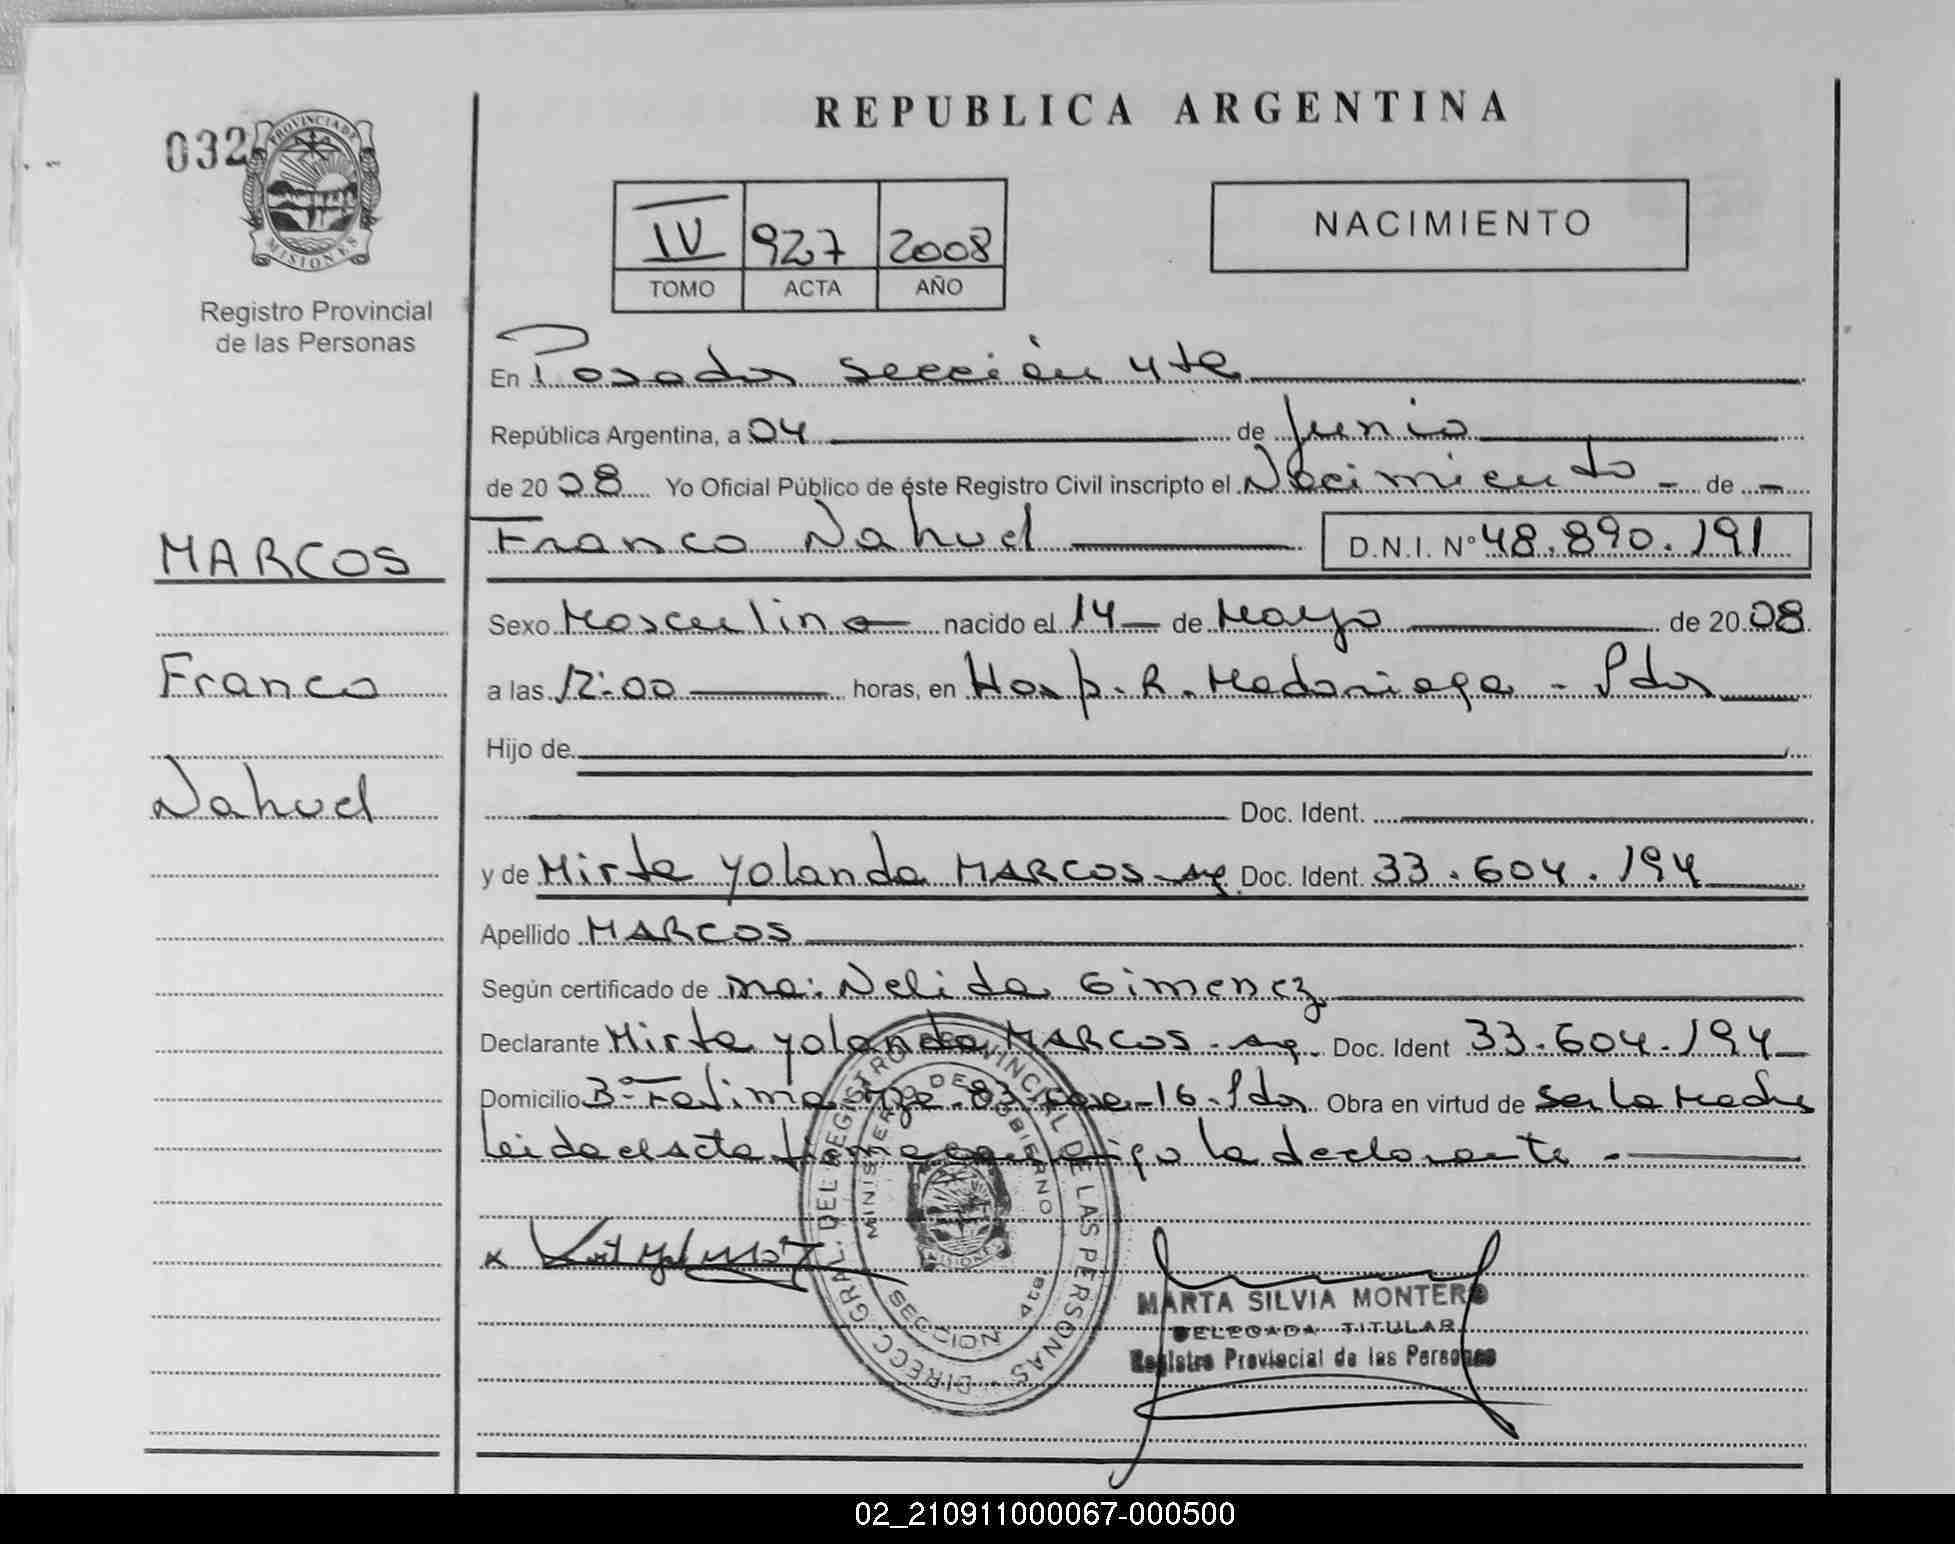 REPUBLICA ARGENTINA
032
PROVINCIA DE
MISIONES
Registro Provincial
de las Personas
IV 927 2008
TOMO ACTA AÑO
NACIMIENTO
En Posadas sección 4ta
República Argentina, a 04 de Junio
de 2008 Yo Oficial Público de éste Registro Civil inscripto el Nacimiento - de -
Franco Nahuel D.N.I. Nº 48.890.191
MARCOS
Franco
Nahuel
Sexo Masculino nacido el 14 de Mayo de 2008
a las 12:00 horas, en Hosp. R. Madariaga - Pdas
Hijo de
Doc. Ident.
y de Mirta Yolanda MARCOS - arg. Doc. Ident. 33.604.194
Apellido MARCOS
Según certificado de Ma: Nelida Gimenez
Declarante Mirta Yolanda MARCOS - arg. Doc. Ident 33.604.194
Domicilio Bº Fatima Mza-83 casa-16-Pdas Obra en virtud de ser la Madre
leida el acta firma conmigo la declarante.-
x
DIRECC. GRAL. DEL REGISTRO PROVINCIAL DE LAS PERSONAS
MINISTERIO DE GOBIERNO
MISIONES
SECCION 4ta.
MARTA SILVIA MONTERO
DELEGADA TITULAR
Registro Provincial de las Personas
02_210911000067-000500